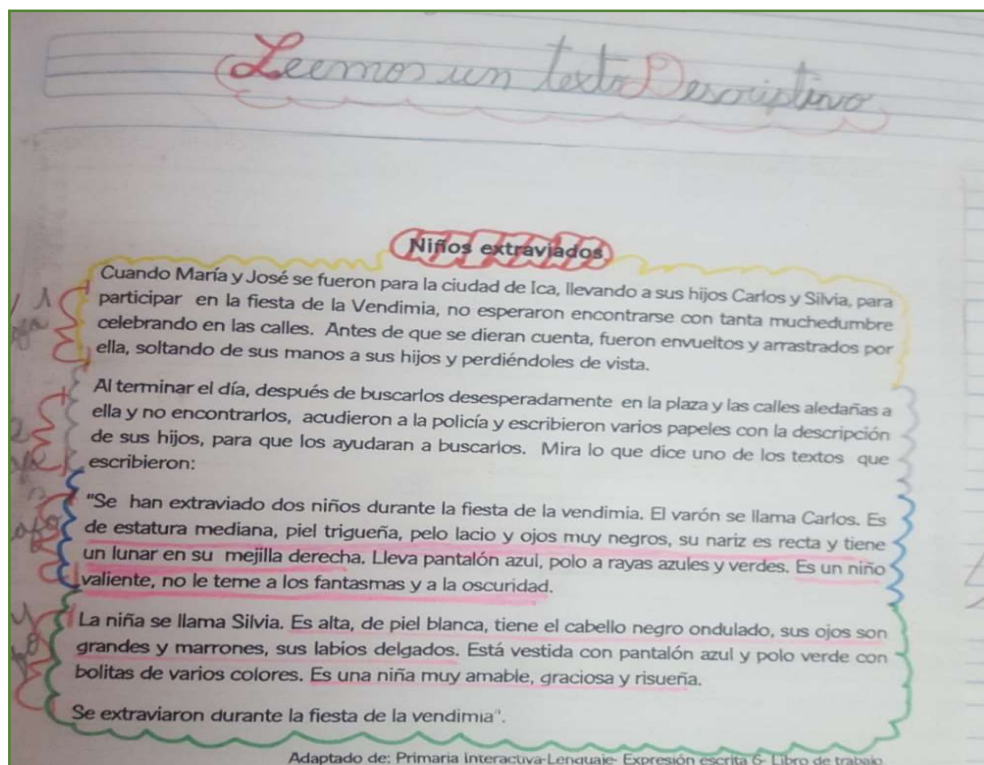 Leemos un texto Descriptivo
Niños extraviados
Cuando María y José se fueron para la ciudad de Ica, llevando a sus hijos Carlos y Silvia, para
participar en la fiesta de la Vendimia, no esperaron encontrarse con tanta muchedumbre
celebrando en las calles. Antes de que se dieran cuenta, fueron envueltos y arrastrados por
ella, soltando de sus manos a sus hijos y perdiéndoles de vista.
Al terminar el día, después de buscarlos desesperadamente en la plaza y las calles aledañas a
ella y no encontrarlos, acudieron a la policía y escribieron varios papeles con la descripción
de sus hijos, para que los ayudaran a buscarlos. Mira lo que dice uno de los textos que
escribieron:
"Se han extraviado dos niños durante la fiesta de la vendimia. El varón se llama Carlos. Es
de estatura mediana, piel trigueña, pelo lacio y ojos muy negros, su nariz es recta y tiene
un lunar en su mejilla derecha. Lleva pantalón azul, polo a rayas azules y verdes. Es un niño
valiente, no le teme a los fantasmas y a la oscuridad.
La niña se llama Silvia. Es alta, de piel blanca, tiene el cabello negro ondulado, sus ojos son
grandes y marrones, sus labios delgados. Está vestida con pantalón azul y polo verde con
bolitas de varios colores. Es una niña muy amable, graciosa y risueña.
Se extraviaron durante la fiesta de la vendimia".
Adaptado de: Primaria Interactiva-Lenguaje- Expresión escrita 6- Libro de trabajo.